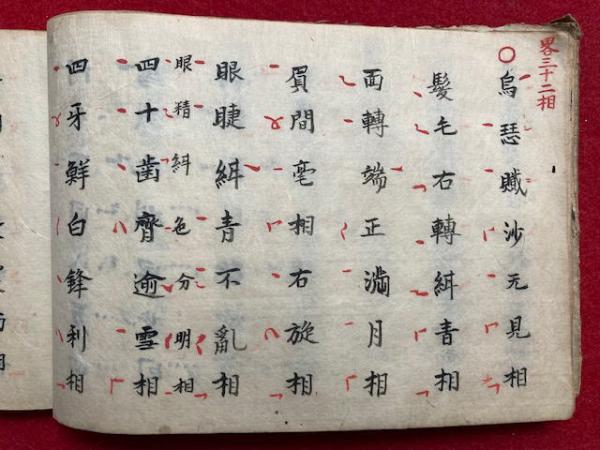 畧三十二相
○烏瑟膩沙无見相
髮毛右轉紺青相
面轉端正滿月相
眉間毫相右旋相
眼睫紺青不亂相
眼精紺色分明相
四十齒齊逾雪相
四牙鮮白鋒利相